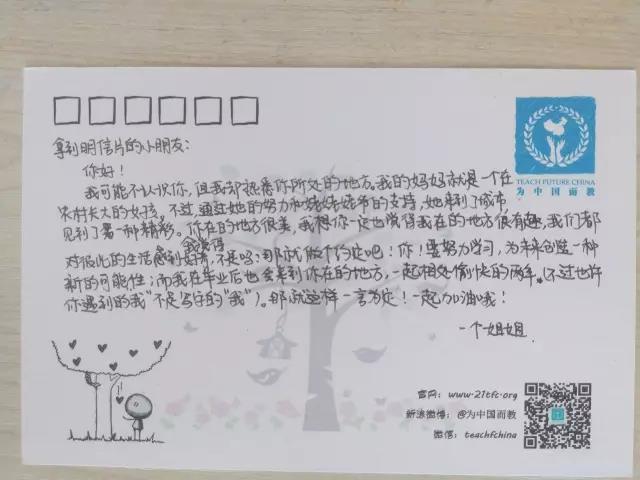 TEACH FUTURE CHINA
为中国而教
拿到明信片的小朋友：
你好！
我可能不认识你，但我却熟悉你所处的地方。我的妈妈就是一个在
农村长大的女孩。不过，通过她的努力和姥姥姥爷的支持，她来到了城市，
见到了另一种精彩。你在的地方很美，我想你一定也觉得我在的地方很有趣，我们都
对彼此的生活感到好奇，不是吗？那就做个约定吧！你！要努力学习，为未来创造一种
新的可能性；而我在毕业后也会来到你在的地方，一起相处愉快的两年。（不过也许
你遇到的我"不是写字的"我"）。那就这样一言为定！一起加油哦！
一个姐姐
官网：www.21tfc.org
新浪微博：@为中国而教
微信：teachfchina